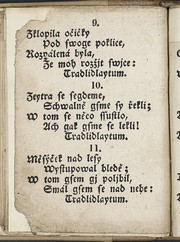 9.
Zklopila očičky
Pod swoge poklice,
Rozpálená byla,
Že moh rozžjt swjce:
Tradlidlaytum.
10.
Zeytra se segdeme,
Schwalně gsme sy řekli;
W tom se něco ssustlo,
Ach gak gsme se lekli!
Tradlidlaytum.
11.
Měsýček nad lesy
Wystupowal bledě;
W tom gsem gj poljbil,
Smál gsem se nad nebe:
Tradlidlaytum.